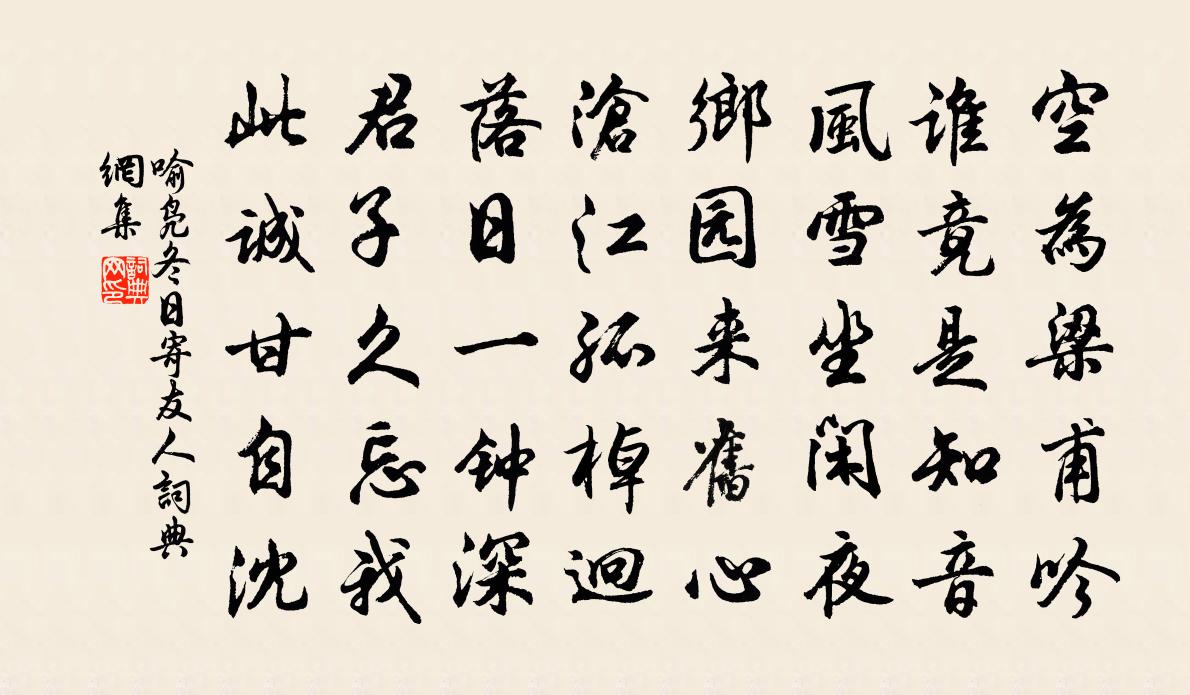 空為梁甫吟
誰竟是知音
風雪坐閑夜
鄉园来舊心
滄江孤棹迥
落日一钟深
君子久忘我
此誠甘自沈
喻鳧冬日寄友人詞典
網集
詞典
网印